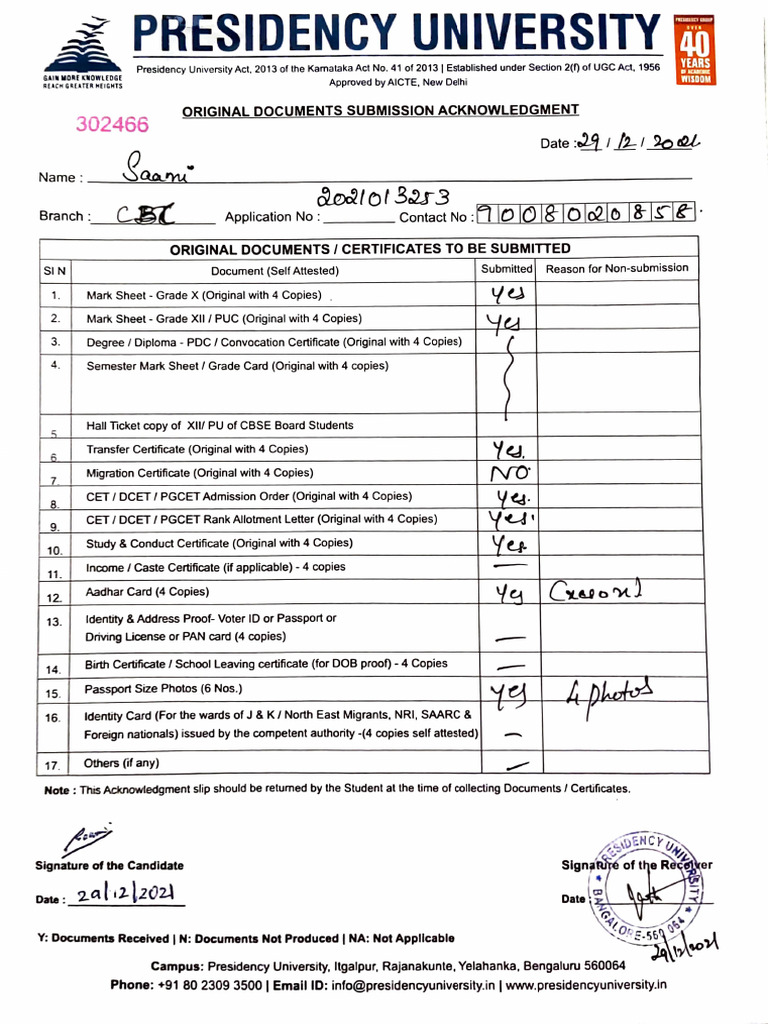 PRESIDENCY UNIVERSITY
GAIN MORE KNOWLEDGE
REACH GREATER HEIGHTS
PRESIDENCY GROUP
OVER
40
YEARS
OF ACADEMIC
WISDOM
Presidency University Act, 2013 of the Karnataka Act No. 41 of 2013 | Established under Section 2(f) of UGC Act, 1956
Approved by AICTE, New Delhi
ORIGINAL DOCUMENTS SUBMISSION ACKNOWLEDGMENT
302466
Date : 29 / 12 / 2021
Name : Saami
Branch : Application No : 2021013253 Contact No : 9008020858
ORIGINAL DOCUMENTS / CERTIFICATES TO BE SUBMITTED
Sl N Document (Self Attested) Submitted Reason for Non-submission
1. Mark Sheet - Grade X (Original with 4 Copies) Yes
2. Mark Sheet - Grade XII / PUC (Original with 4 Copies) Yes
3. Degree / Diploma - PDC / Convocation Certificate (Original with 4 Copies)
4. Semester Mark Sheet / Grade Card (Original with 4 copies)
5. Hall Ticket copy of XII/ PU of CBSE Board Students
6. Transfer Certificate (Original with 4 Copies) Yes.
7. Migration Certificate (Original with 4 Copies) NO
8. CET / DCET / PGCET Admission Order (Original with 4 Copies) Yes.
9. CET / DCET / PGCET Rank Allotment Letter (Original with 4 Copies) Yes.
10. Study & Conduct Certificate (Original with 4 Copies) Yes
11. Income / Caste Certificate (if applicable) - 4 copies —
12. Aadhar Card (4 Copies) Yes
13. Identity & Address Proof- Voter ID or Passport or
Driving License or PAN card (4 copies) —
14. Birth Certificate / School Leaving certificate (for DOB proof) - 4 Copies —
15. Passport Size Photos (6 Nos.) Yes 4 photos
16. Identity Card (For the wards of J & K / North East Migrants, NRI, SAARC &
Foreign nationals) issued by the competent authority -(4 copies self attested) —
17. Others (if any) —
Note : This Acknowledgment slip should be returned by the Student at the time of collecting Documents / Certificates.
Saami
Signature of the Candidate Signature of the Receiver
Date : 29/12/2021 Date :
PRESIDENCY UNIVERSITY
BANGALORE-560 064
29/12/2021
Y: Documents Received | N: Documents Not Produced | NA: Not Applicable
Campus: Presidency University, Itgalpur, Rajanakunte, Yelahanka, Bengaluru 560064
Phone: +91 80 2309 3500 | Email ID: info@presidencyuniversity.in | www.presidencyuniversity.in